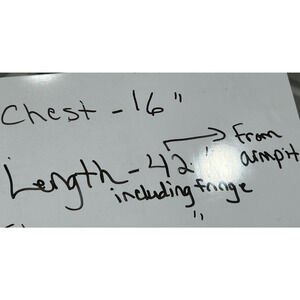 Chest - 16"
Length - 42" from armpit
including fringe
"